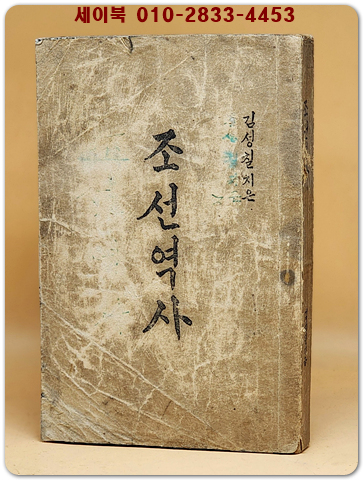 세이북 010-2833-4453
조선역사
김성칠지은